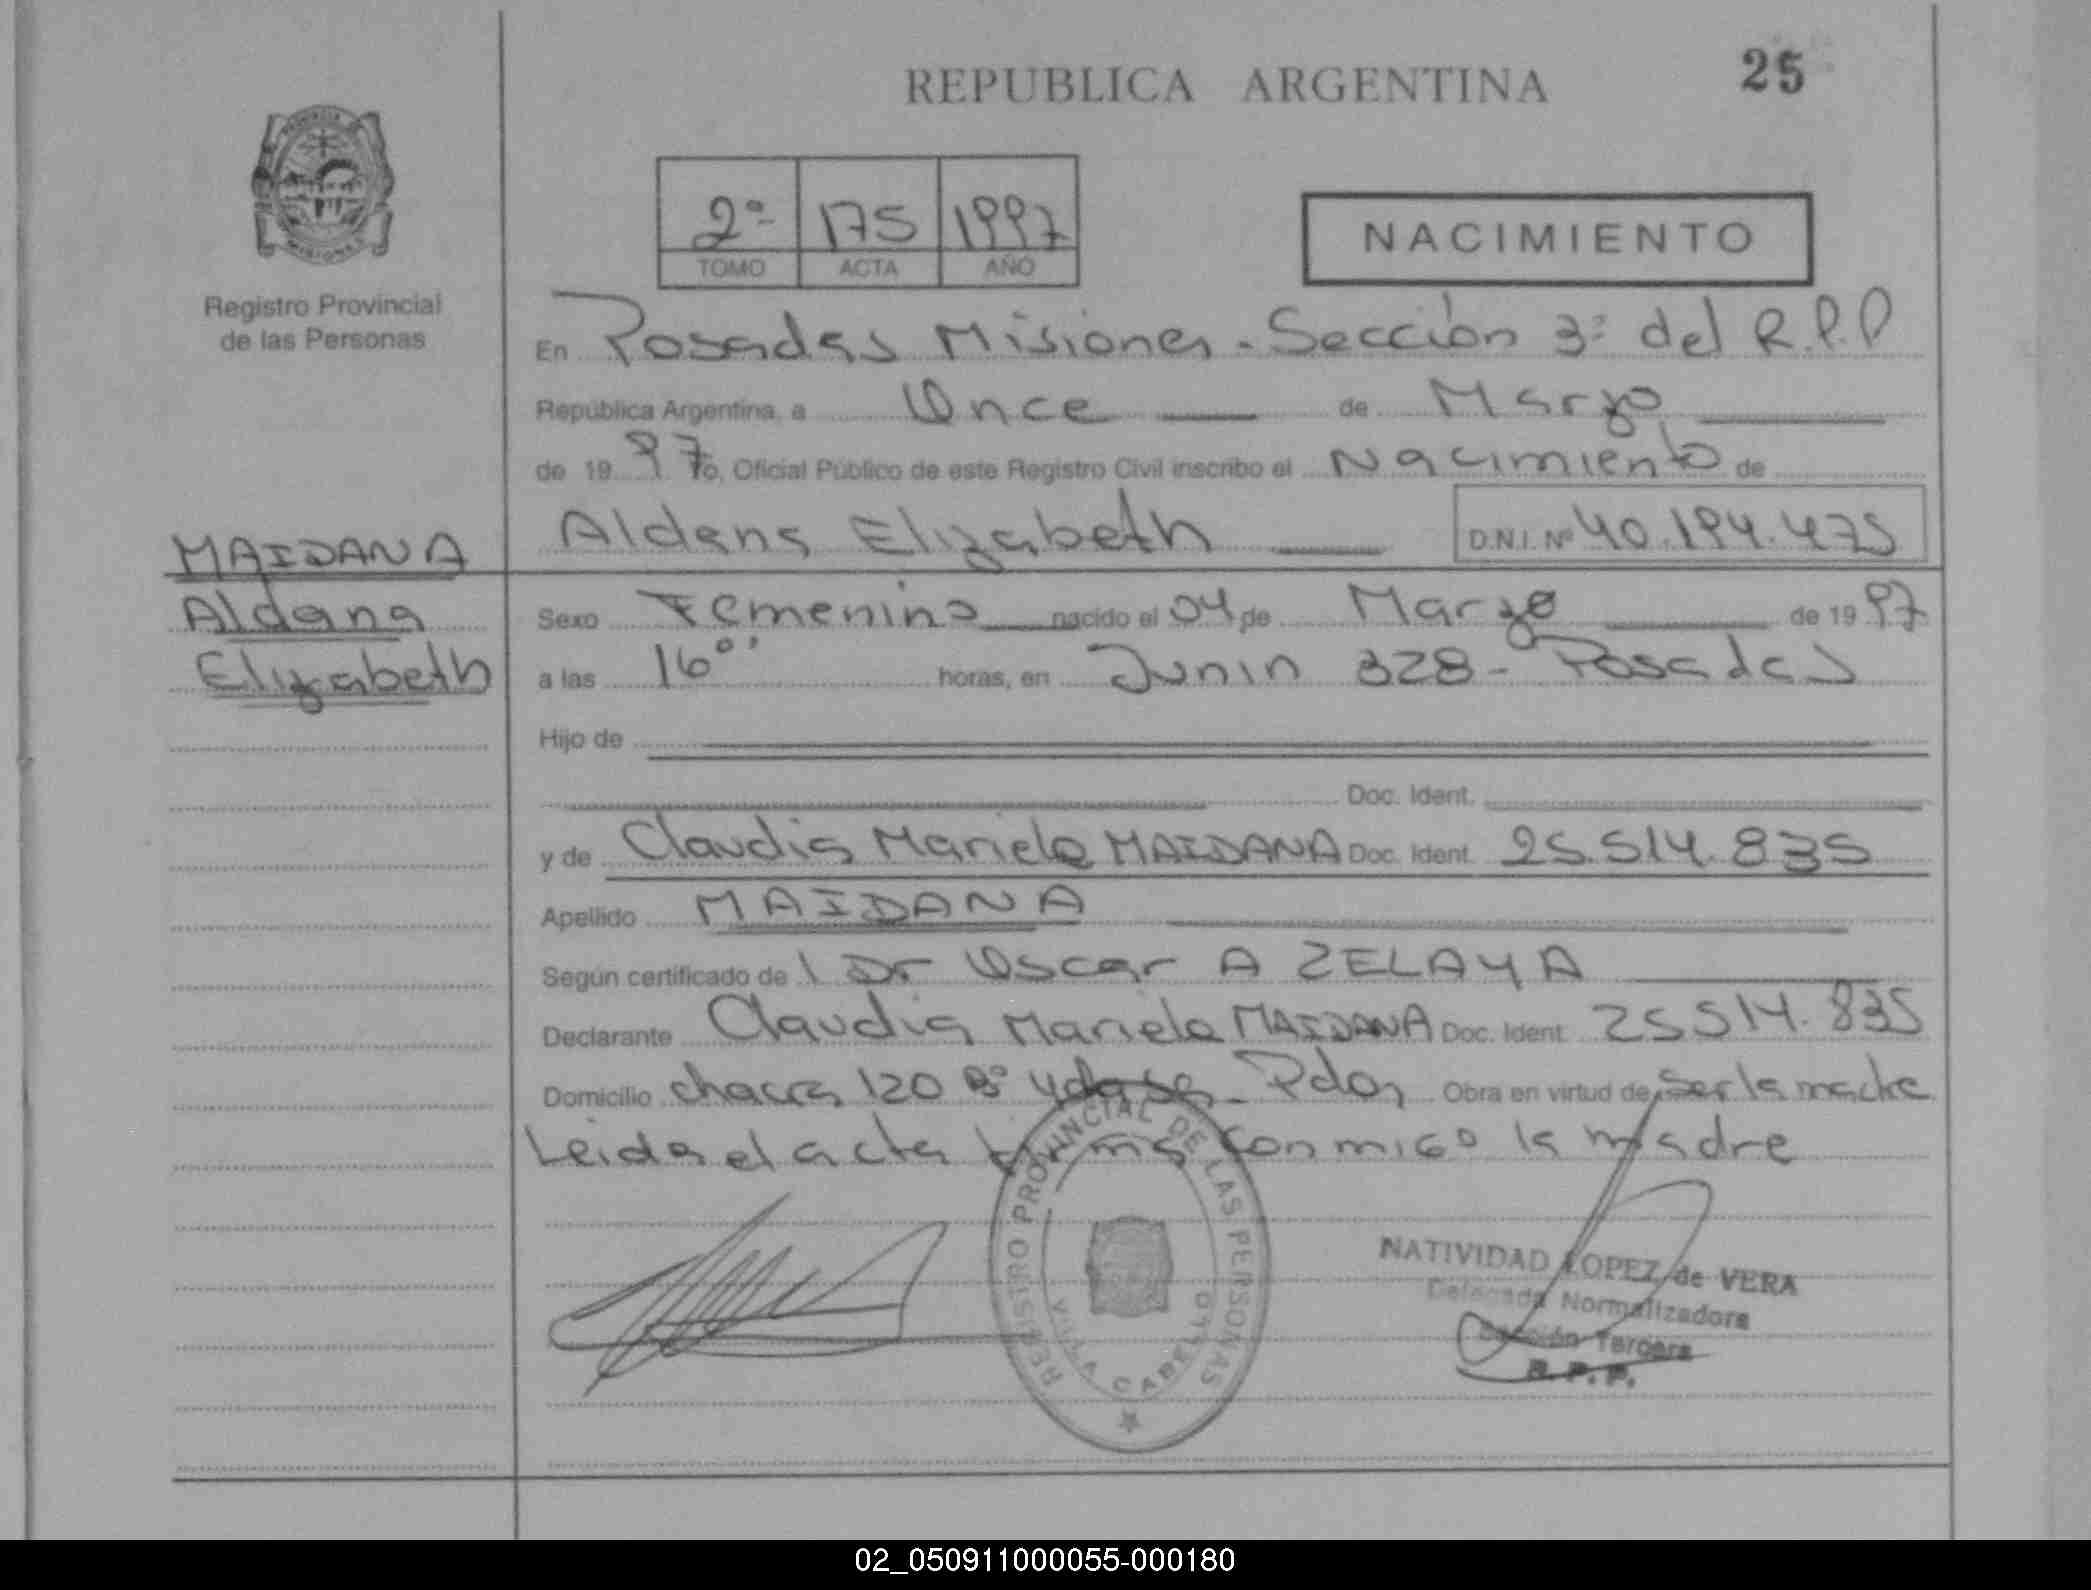 REPUBLICA ARGENTINA
25
2º 175 1997
TOMO ACTA AÑO
NACIMIENTO
Registro Provincial
de las Personas
En Posadas Misiones - Sección 3ª del R.P.P
República Argentina, a Once de Marzo
de 1997 yo, Oficial Público de este Registro Civil inscribo el Nacimiento de
MAIDANA
Aldana
Elizabeth
Aldana Elizabeth D.N.I. Nº 40.194.475
Sexo Femenino nacido el 04 de Marzo de 1997
a las 16ºº horas, en Junin 328 - Posadas
Hijo de
Doc. Ident.
y de Claudia Mariela MAIDANA Doc. Ident. 25.514.835
Apellido MAIDANA
Según certificado de l Dr Oscar A ZELAYA
Declarante Claudia Mariela MAIDANA Doc. Ident. 25514.835
Domicilio chacra 120 Bº - Pdas Obra en virtud de ser la madre
Leida el acta firma conmigo la madre
REGISTRO PROVINCIAL DE LAS PERSONAS
VILLA CABELLO
NATIVIDAD LOPEZ de VERA
Delegada Normalizadora
Sección Tercera
R. P. P.
02_050911000055-000180